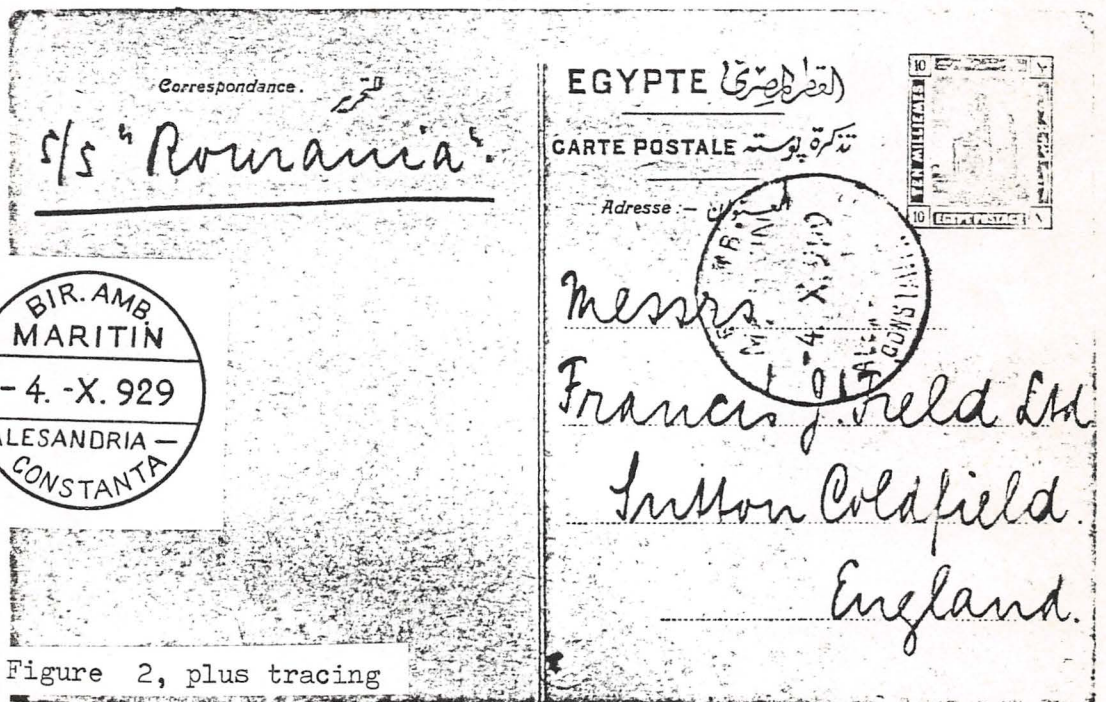 Correspondance.
التحرير
s/s "Romania".
BIR. AMB
MARITIN
-4. -X. 929
ALESANDRIA —
CONSTANTA
Figure 2, plus tracing
EGYPTE القطر المصرى
CARTE POSTALE تذكرة پوسته
Adresse :— العنوان
10
TEN MILLIEMES
10 EGYPT POSTAGE ١٠
-4. X 929
CONSTAN
Messrs
Francis J. Field Ltd
Sutton Coldfield.
England.